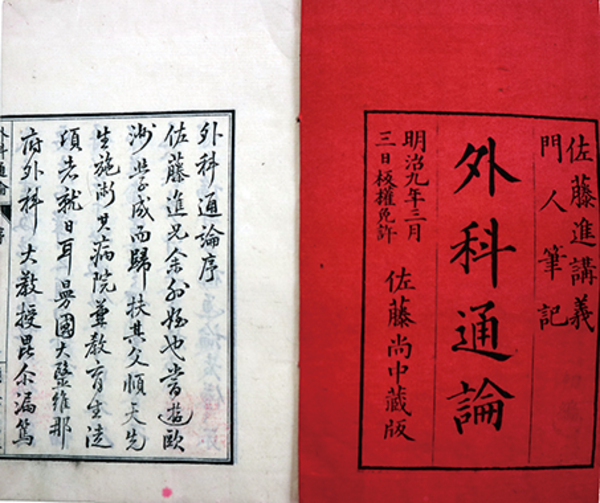 佐藤進講義
門人筆記
外科通論
明治九年三月
三日板權免許
佐藤尚中藏版
外科通論序
佐藤進兄余外姪也嘗遊歐
洲學成而歸扶其父順天先
生施術其病院兼教育生徒
頃者就日耳曼國大醫維那
府外科大教授昆尓漏篤
外科通論 序